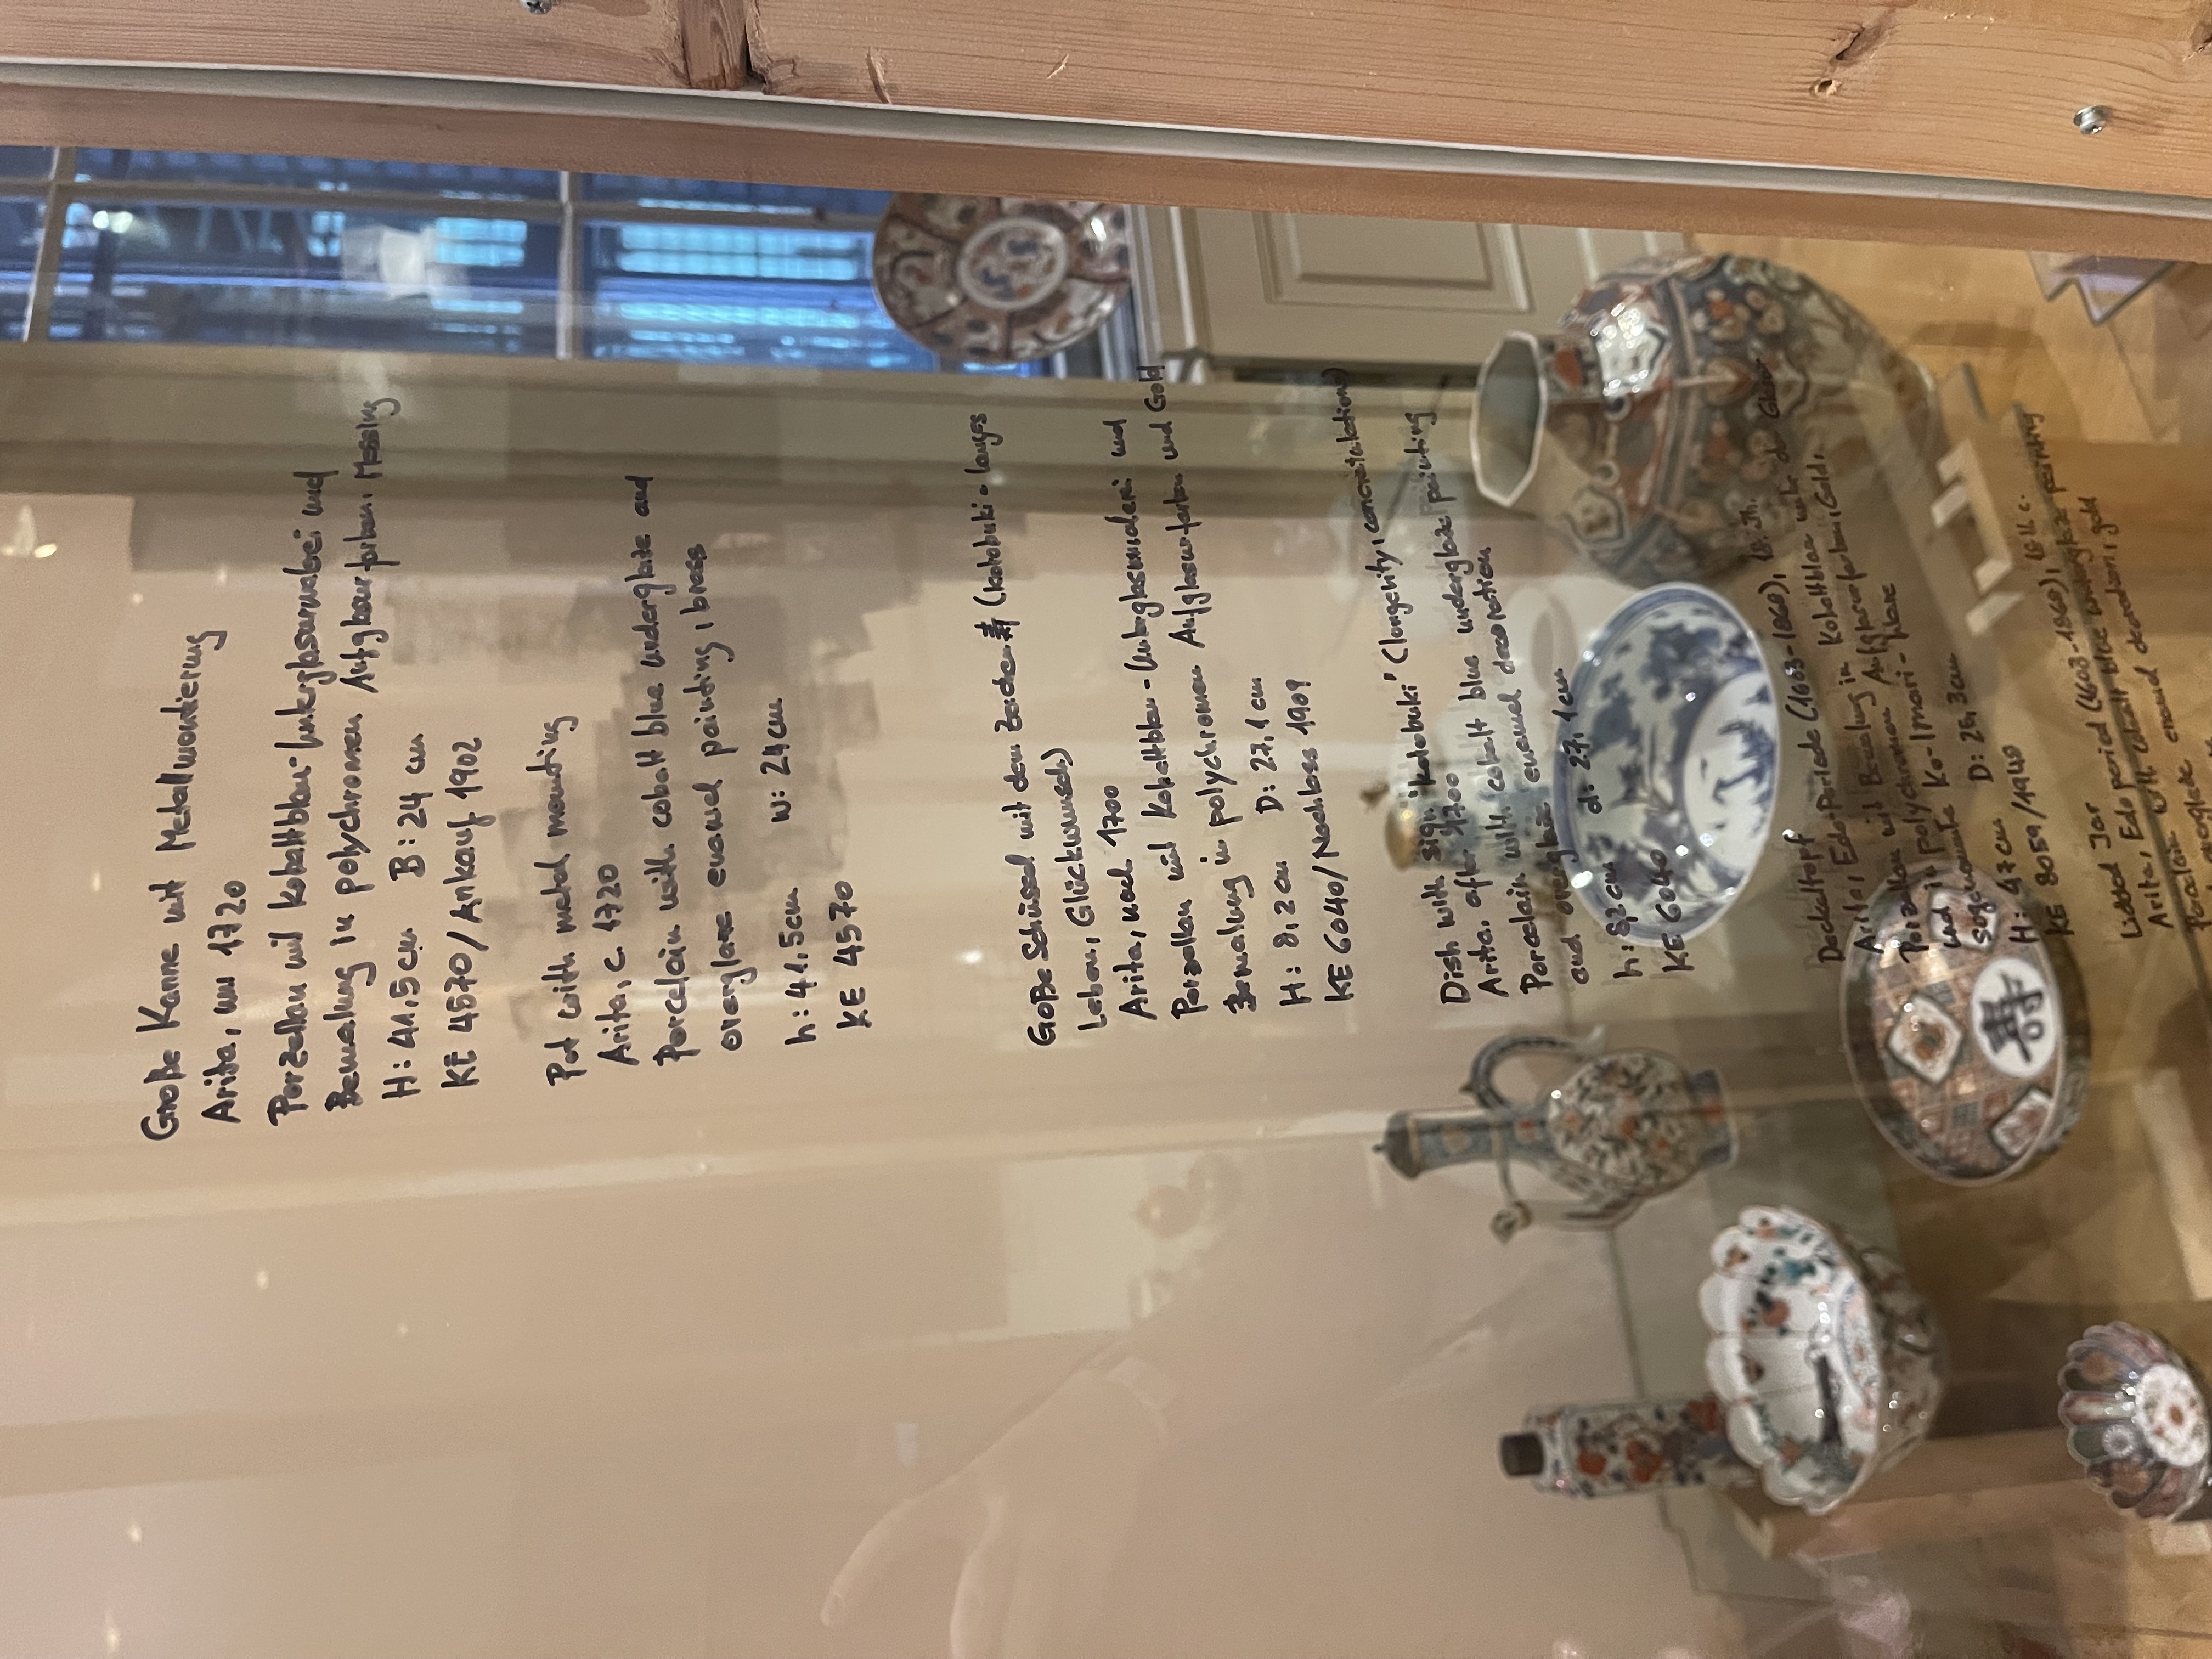 Große Kanne mit Metallmontierung
Arita, um 1720
Porzellan mit kobaltblau-Unterglasurmalerei und
Bemalung in polychromen Aufglasurfarben. Messing
H: 41,5 cm B: 24 cm
KE 4570/Ankauf 1902
Pot with metal mounting
Arita, c. 1720
Porcelain with cobalt blue underglaze and
overglaze enamel painting, brass
h: 41,5cm w: 24cm
KE 4570
Goße Schüssel mit dem Zeichen 寿 (kotobuki - langes
Leben, Glückwunsch)
Arita, nach 1700
Porzellan mit Kobaltblau-Unterglasurmalerei und
Bemalung in polychromen Aufglasurfarben und Gold
H: 8,2 cm D: 27,1 cm
KE 6040/Nachlass 1909
Dish with sign "kotobuki" (longevity,
Arita, after 1700
Porcelain with cobalt blue underglaze painting
and overglaze enamel decoration
h: 8,2 cm d: 27,1 cm
KE 6040
Deckeltopf
Arita, Edo-Periode (1603-1868), 18. Jh.
Porzellan mit Bemalung in Kobaltblau unter der Glasur
und in polychromen Aufglasurfarben, Gold,
sogenannte Ko-Imari-Ware
H: 47 cm D: 25,3cm
KE 8059/1948
壽
Lidded Jar
Arita, Edo period (1603-1868), 18th c.
Porcelain with cobalt blue underglaze painting
overglaze enamel decoration, gold